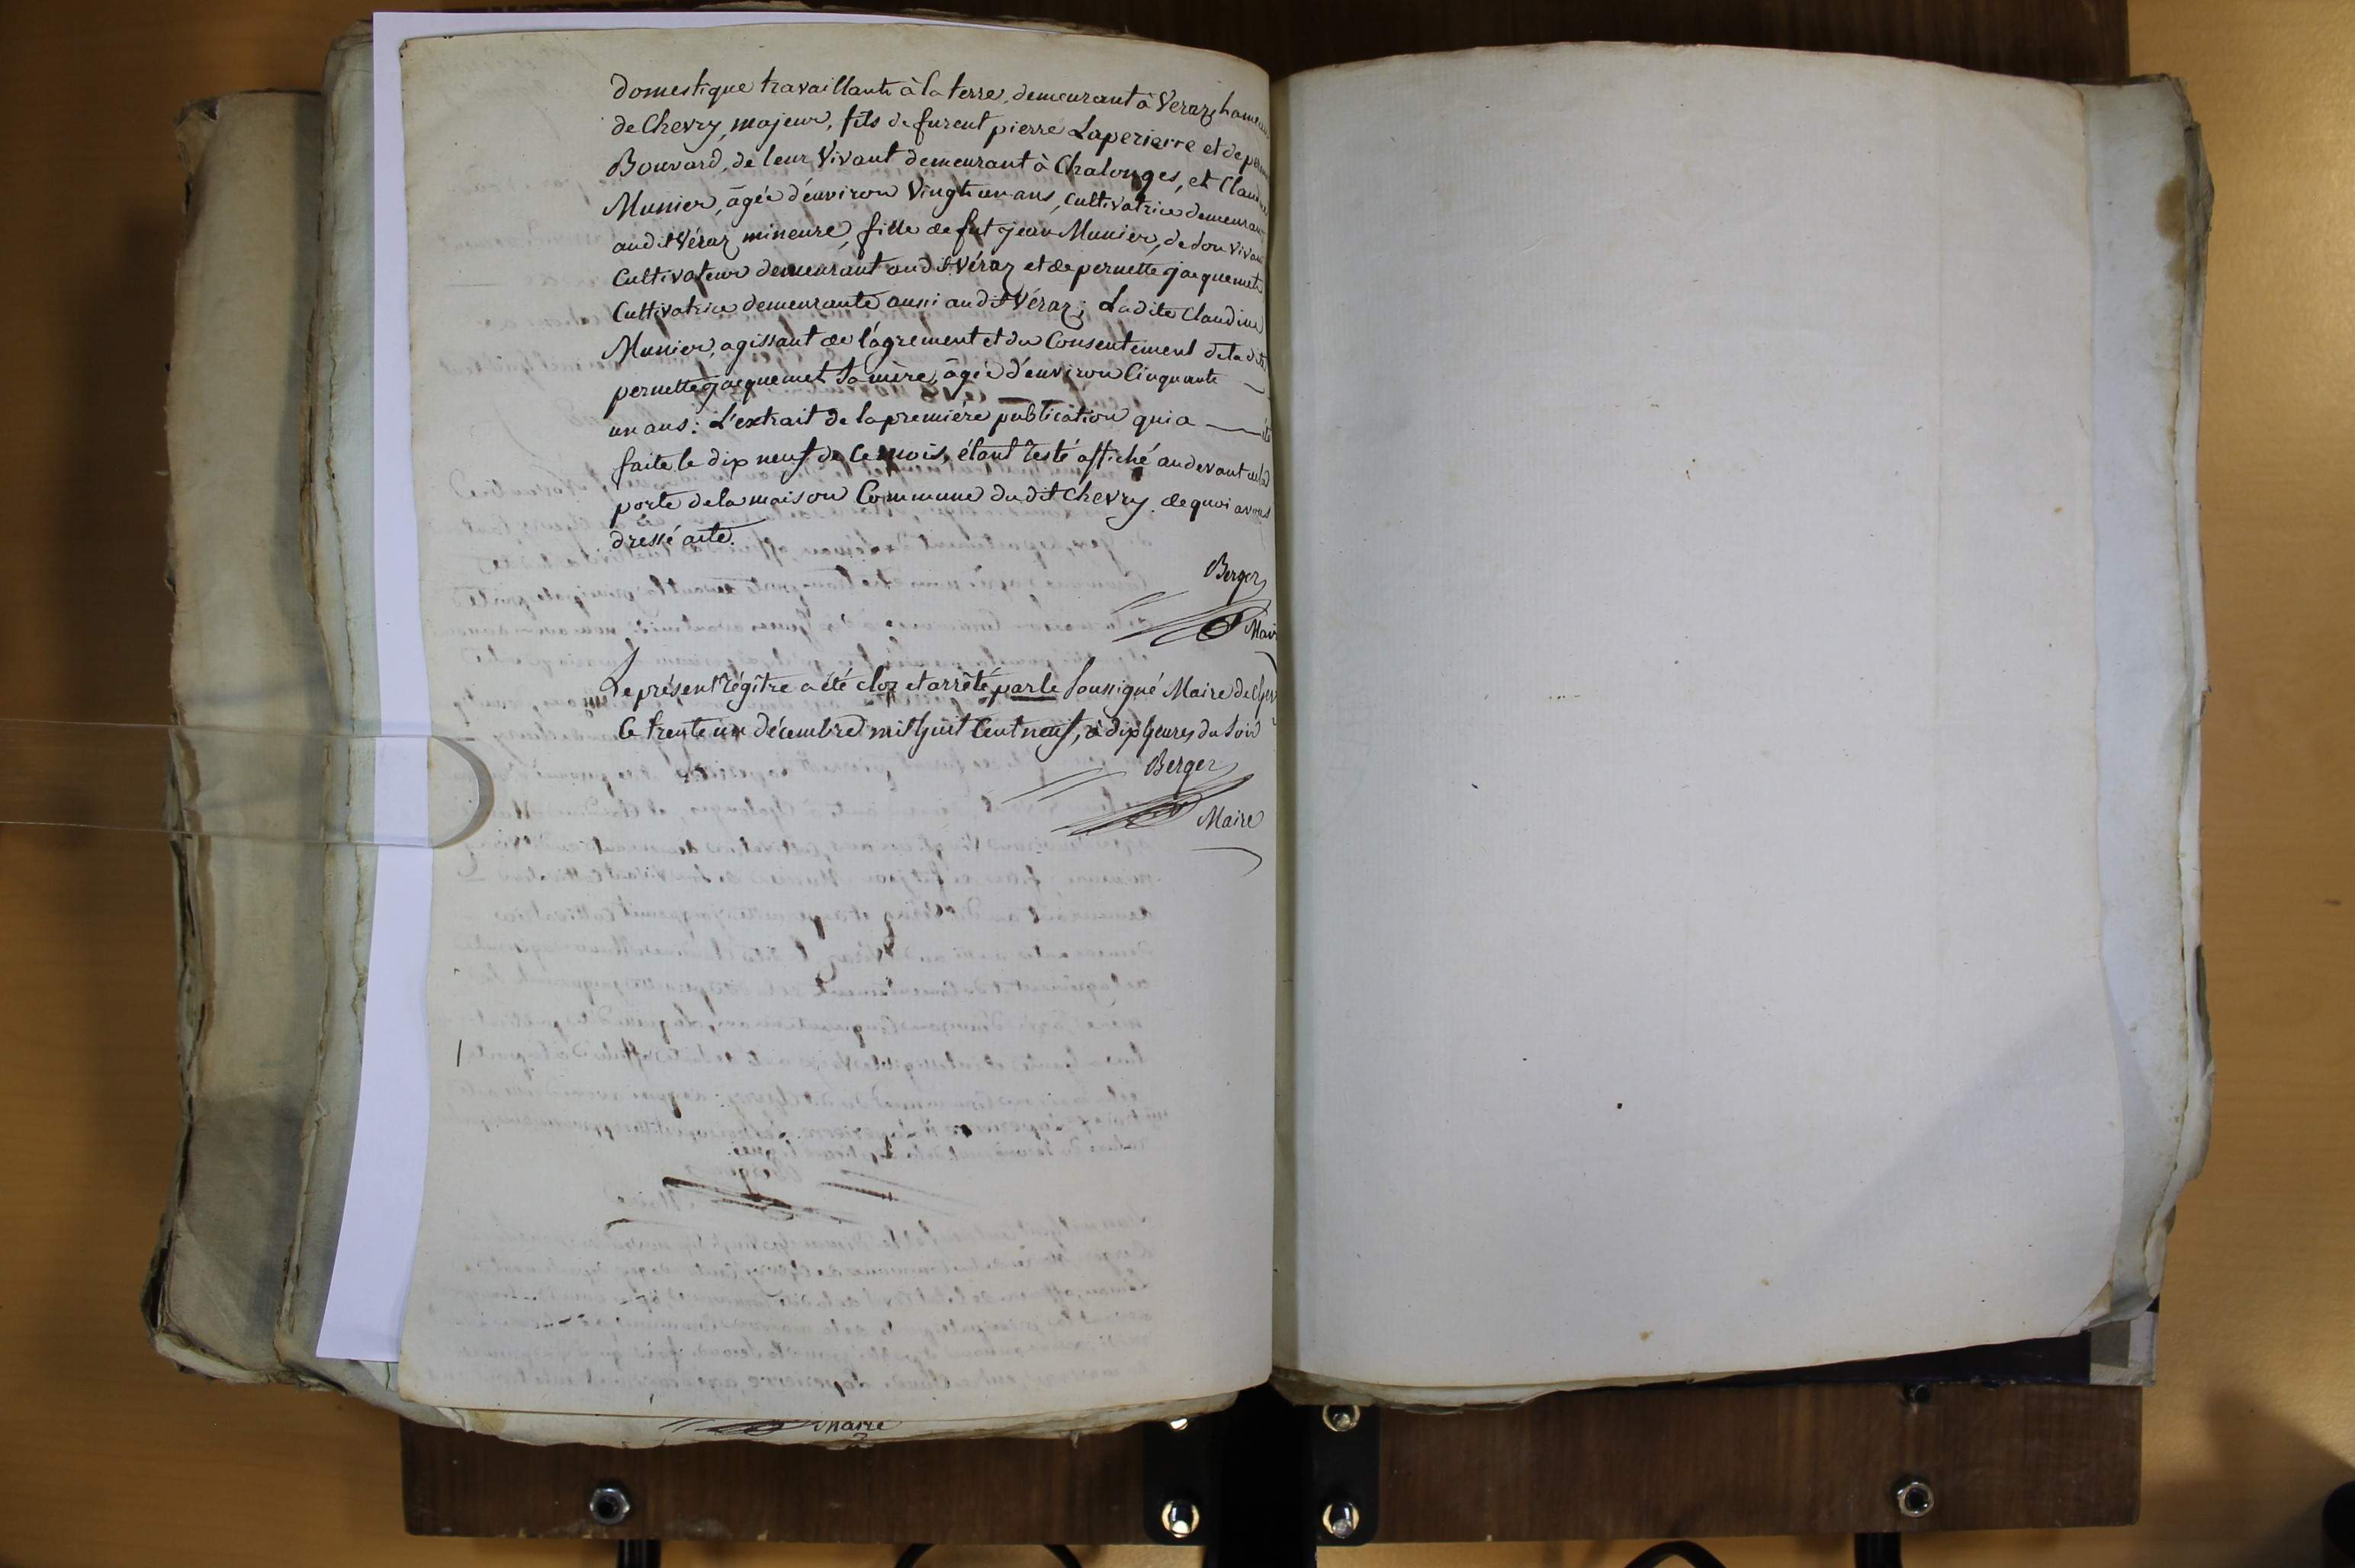 domestique travaillant à la terre, demeurant à Veraz hameau
de Chevry, majeur, fils de furent pierre Laperierre et de
Bouvard, de leur Vivant demeurant à Chalonges, et Claudine
Munier, âgée d'environ Vingt un ans, cultivatrice demeurant
audit Véraz mineure, fille de fut jean Munier, de son vivant
Cultivateur demeurant audit Véraz et de pernette jacquemet
Cultivatrice demeurante aussi audit Véraz; Ladite Claudine
Munier, agissant de l'agrement et du Consentement de la dite
pernette jacquemet Sa mère, âgée d'environ Cinquante
un ans: L'extrait de la premiére publication qui a été
faite le dix neuf de Ce mois, étant resté affiché au devant de la
porte de la maison Commune dudit Chevry. de quoi avons
dressé acte.
Berger
Maire
Le présent régître a été clos et arrêté par le Soussigné Maire de
le trente un décembre mil huit Cent neuf, à dix heures du Soir
Berger
Maire
Maire